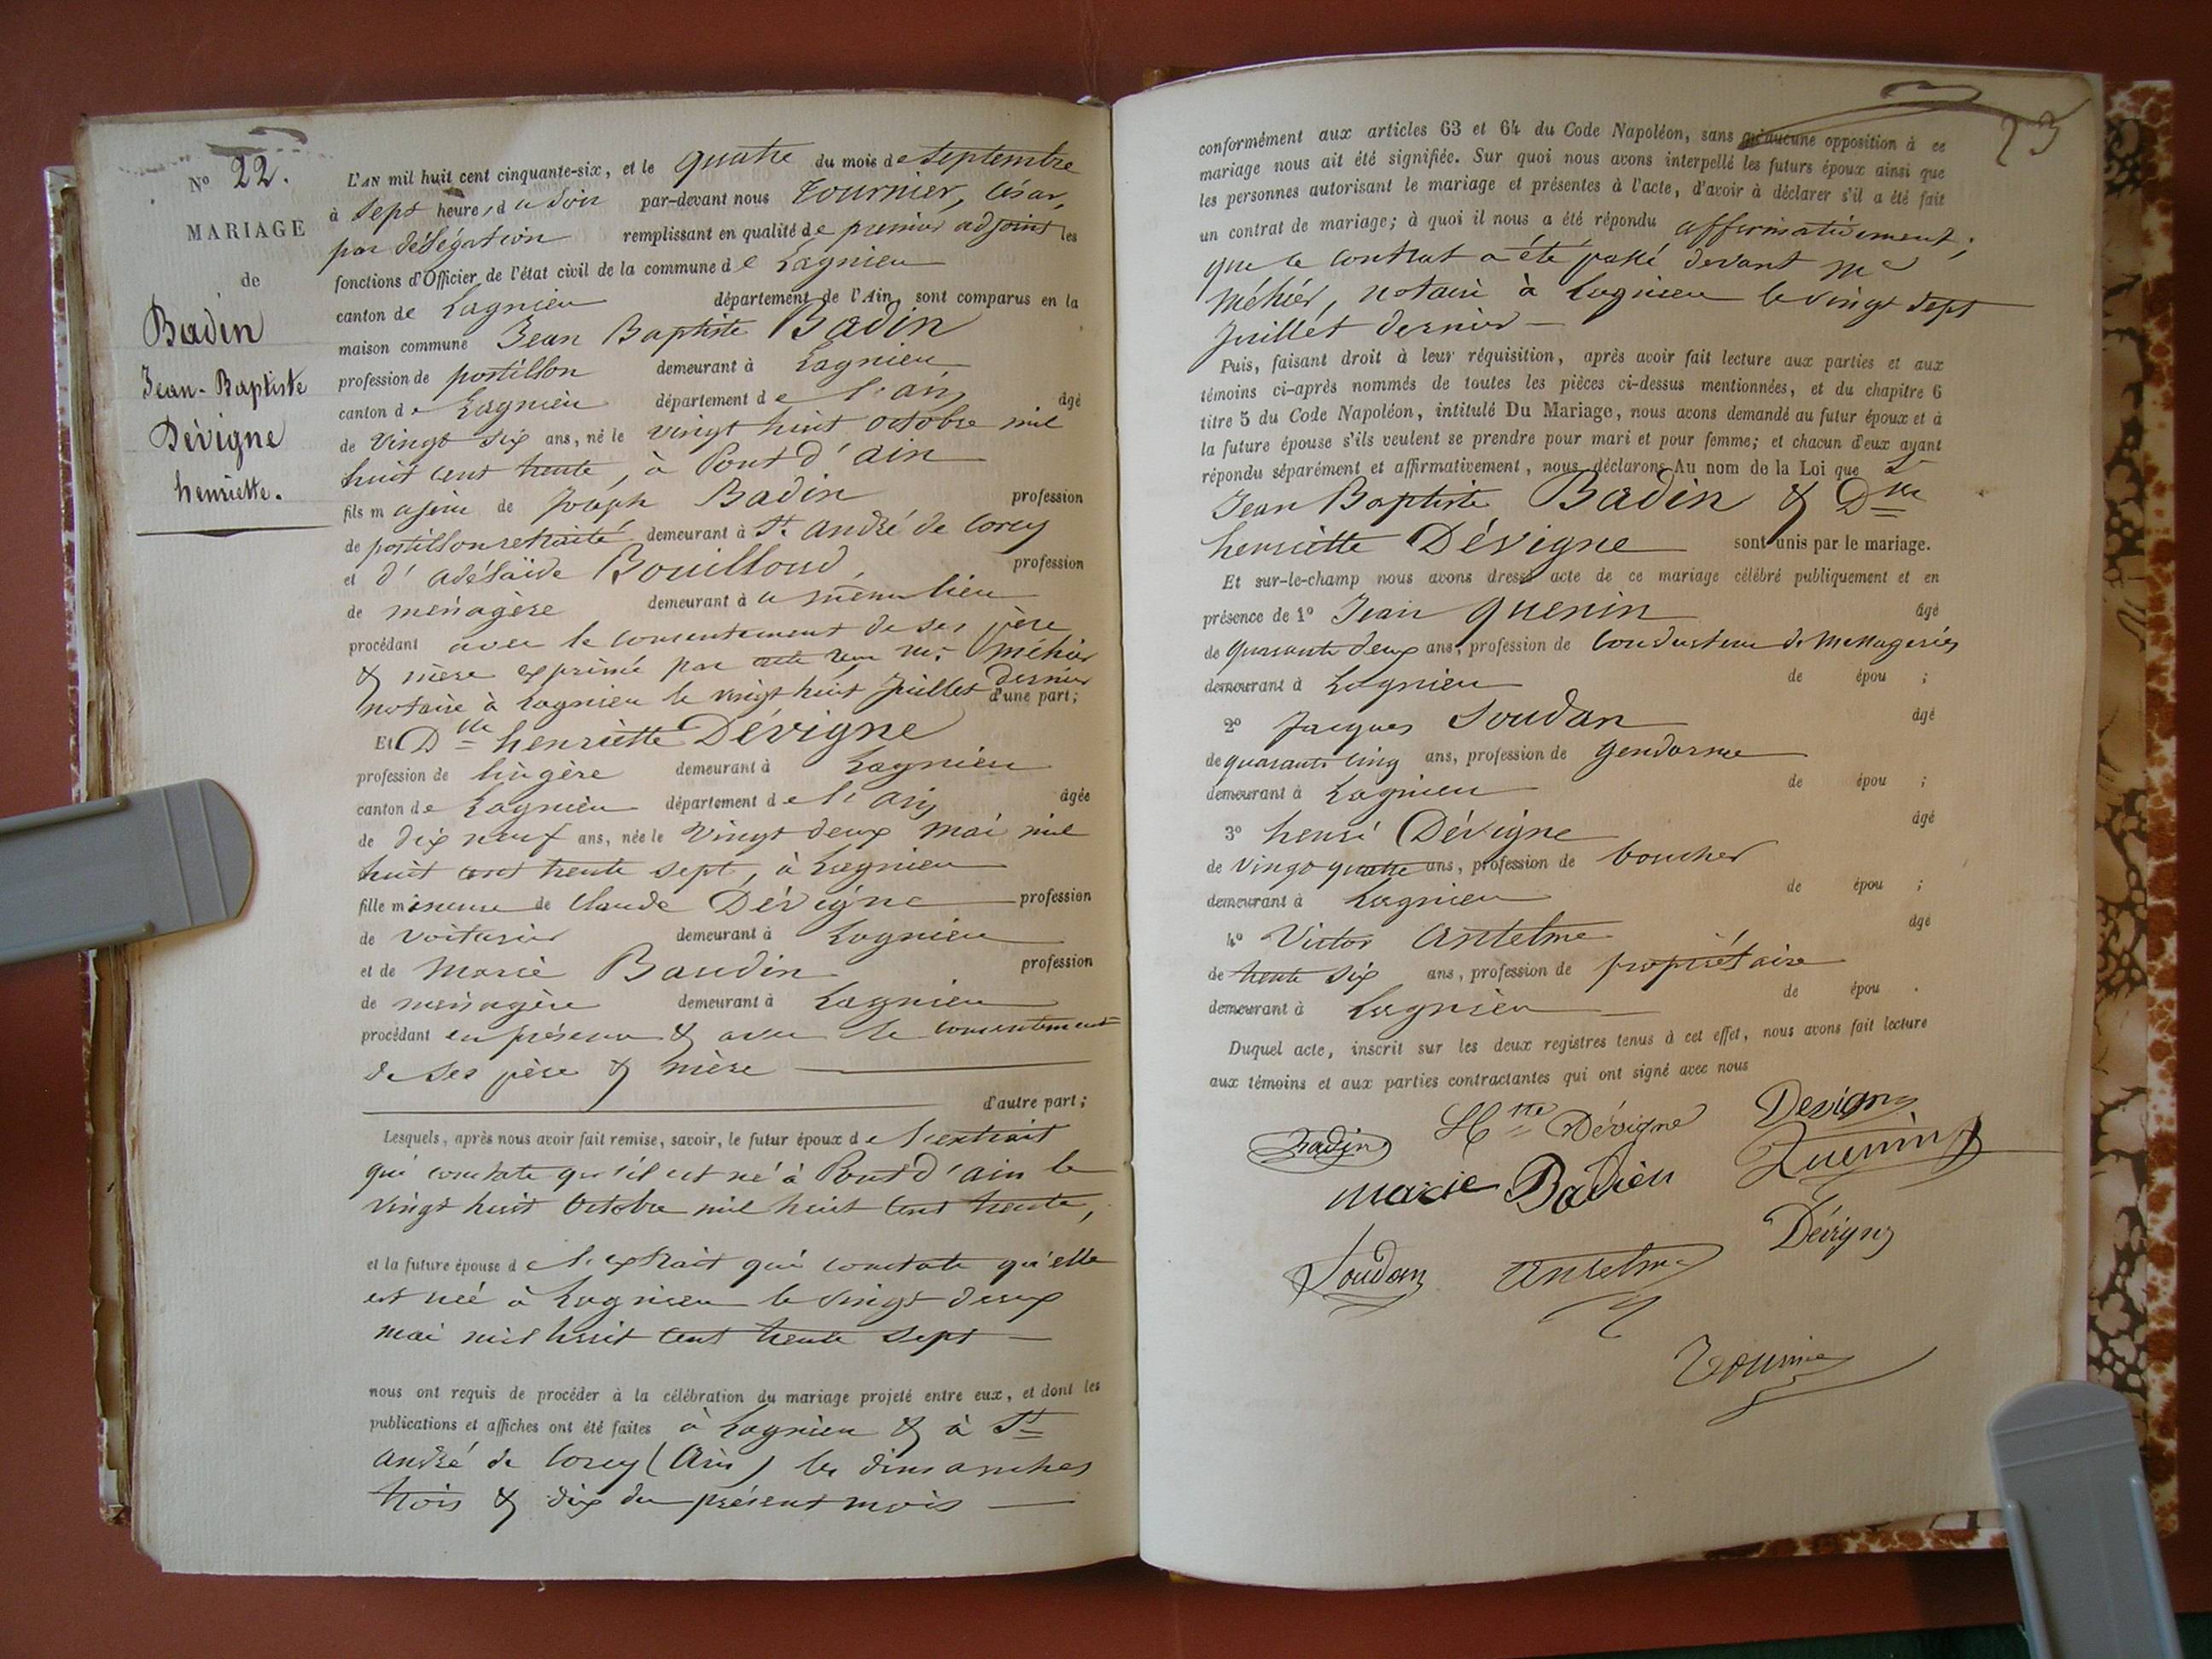 N° 22.
MARIAGE
de
Badin
Jean-Baptiste
Dévigne
henriette.
L'AN mil huit cent cinquante-six, et le quatre du mois de septembre
à sept heures du soir par-devant nous Tournier, César,
par délégation remplissant en qualité de premier adjoint les
fonctions d'Officier de l'état civil de la commune de Lagnieu
canton de Lagnieu département de l'Ain, sont comparus en la
maison commune Jean Baptiste Badin
profession de postillon demeurant à Lagnieu
canton de Lagnieu département de l'ain âgé
de vingt six ans, né le vingt huit octobre mil
huit cent trente, à Pont d'ain
fils majeur de Joseph Badin profession
de postillon retraité demeurant à St. andré de Corcy
et d'adélaïde Bouilloud, profession
de ménagère demeurant à u même lieu
procédant avec le consentement de ses père
& mère exprimé par acte reçu Me. Méhier
notaire à Lagnieu le vingt huit Juillet dernier d'une part;
Et Dlle henriette Dévigne
profession de lingère demeurant à Lagnieu
canton de Lagnieu département de l'ain âgée
de dix neuf ans, née le vingt deux mai mil
huit cent trente sept, à Lagnieu
fille mineure de Claude Dévigne profession
de voiturier demeurant à Lagnieu
et de Marie Baudin profession
de ménagère demeurant à Lagnieu
procédant en présence & avec le consentement
de ses père & mère
d'autre part;
Lesquels, après nous avoir fait remise, savoir, le futur époux de l'extrait
qui constate qu'il est né à Pont d'ain le
vingt huit Octobre mil huit cent trente,
et la future épouse de l'extrait qui constate qu'elle
est née à Lagnieu le vingt deux
mai mil huit cent trente sept
nous ont requis de procéder à la célébration du mariage projeté entre eux, et dont les
publications et affiches ont été faites à Lagnieu & à St
andré de Corcy (Ain) les dimanches
trois & dix du présent mois
23
conformément aux articles 63 et 64 du Code Napoléon, sans qu'aucune opposition à ce
mariage nous ait été signifiée. Sur quoi nous avons interpellé les futurs époux ainsi que
les personnes autorisant le mariage et présentes à l'acte, d'avoir à déclarer s'il a été fait
un contrat de mariage; à quoi il nous a été répondu affirmativement;
que le contrat a été passé devant Me
Méhier, notaire à Lagnieu le vingt sept
Juillet dernier
Puis, faisant droit à leur réquisition, après avoir fait lecture aux parties et aux
témoins ci-après nommés de toutes les pièces ci-dessus mentionnées, et du chapitre 6
titre 5 du Code Napoléon, intitulé Du Mariage, nous avons demandé au futur époux et à
la future épouse s'ils veulent se prendre pour mari et pour femme; et chacun d'eux ayant
répondu séparément et affirmativement, nous déclarons Au nom de la Loi que
Jean Baptiste Badin & Dlle
henriette Dévigne sont unis par le mariage.
Et sur-le-champ nous avons dressé acte de ce mariage célébré publiquement et en
présence de 1° Jean Quenin âgé
de quarante deux ans, profession de Conducteur de Messageries
demeurant à Lagnieu de épou ;
2° Jacques Soudan âgé
de quarante cinq ans, profession de Gendarme
demeurant à Lagnieu de épou ;
3° henri Dévigne âgé
de vingt quatre ans, profession de boucher
demeurant à Lagnieu de épou ;
4° Victor Antelme âgé
de trente six ans, profession de propriétaire
demeurant à Lagnieu de épou .
Duquel acte, inscrit sur les deux registres tenus à cet effet, nous avons fait lecture
aux témoins et aux parties contractantes qui ont signé avec nous
Badin Htte Dévigne Devigne
Marie Badien Quenin
Dévigne
Soudan Antelme
Tournier